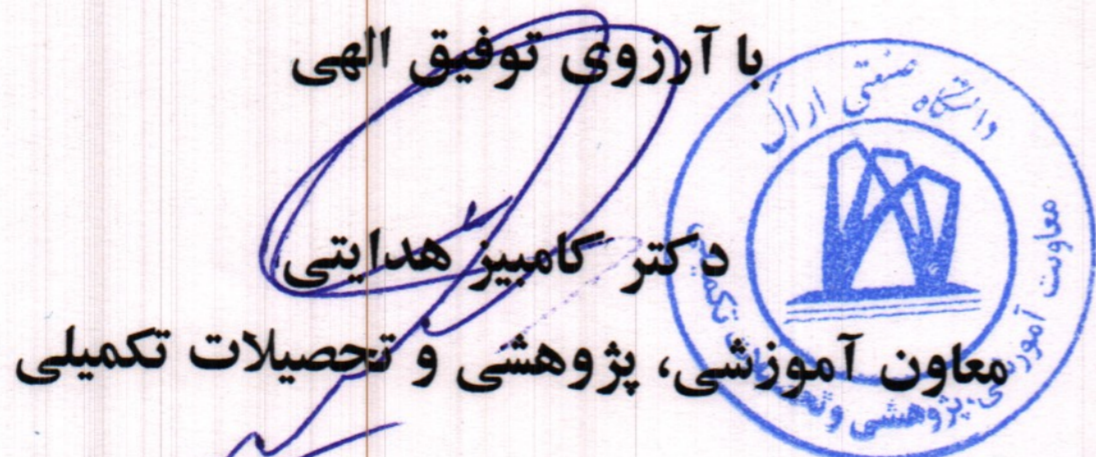 با آرزوی توفیق الهی
دکتر کامبیز هدایتی
معاون آموزشی، پژوهشی و تحصیلات تکمیلی
دانشگاه صنعتی اراک
معاونت آموزشی، پژوهشی و تحصیلات تکمیلی